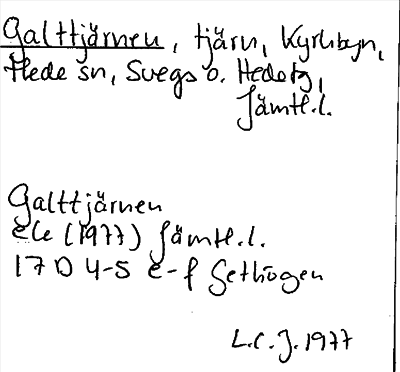 Galttjärnen, tjärn, Kyrkbyn,
Hede sn, Svegs o. Hede tg,
Jämtl.l.
Galttjärnen
ek (1977) Jämtl.l.
17 D 4-5 e-f Gethögen
L.C.J. 1977